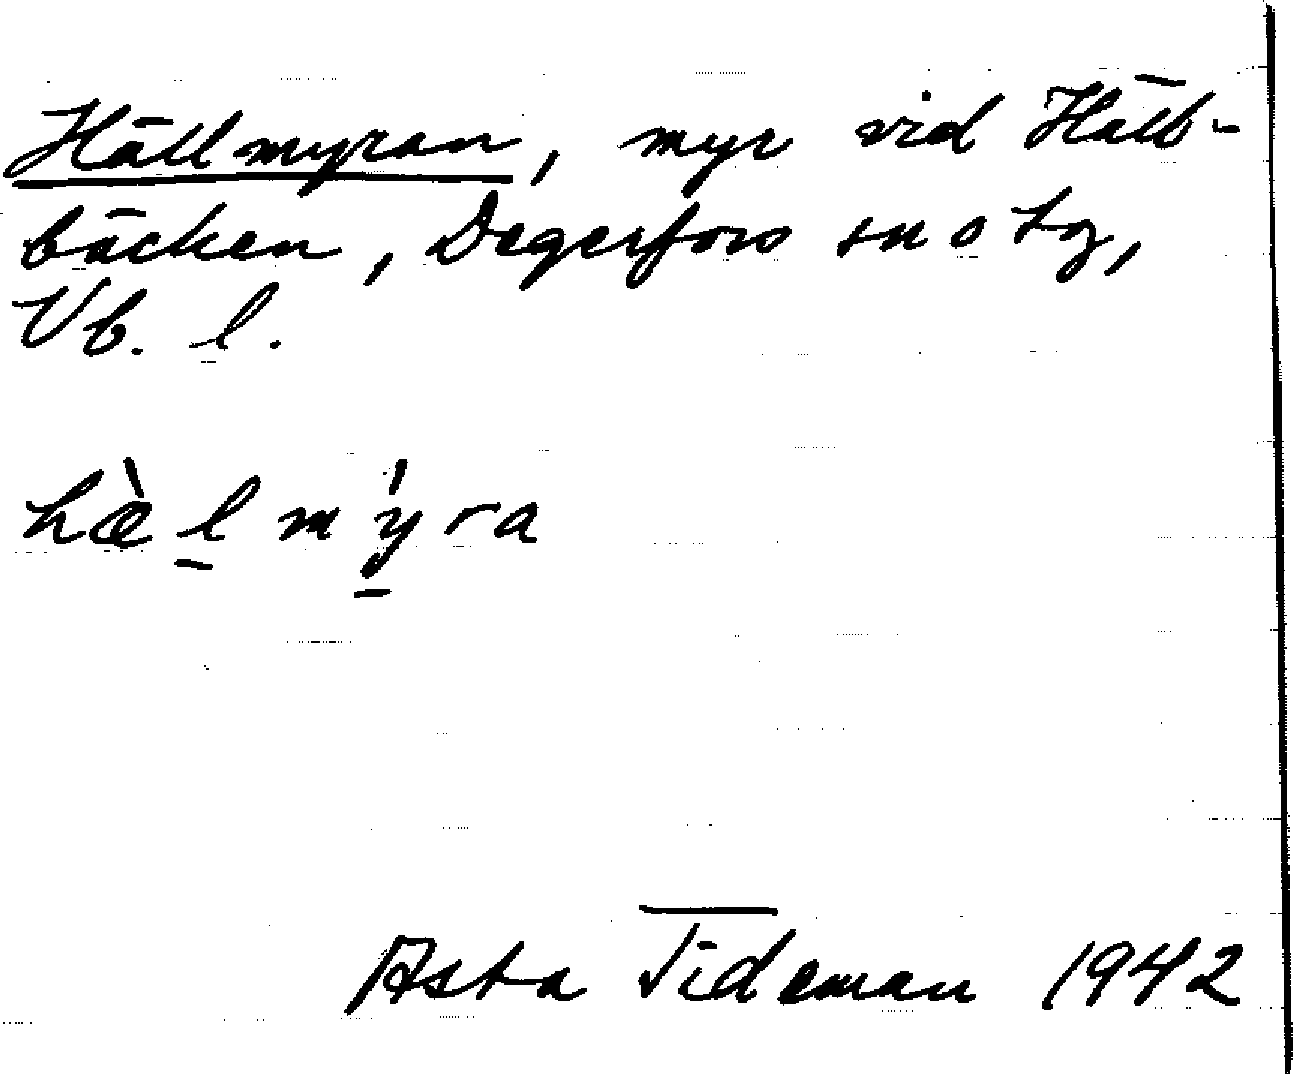 Hällmyran, myr vid Häll-
bäcken, Degerfors sn o tg,
Vb. l.
hæ̀l̠mý̠ra
Asta Tideman 1942